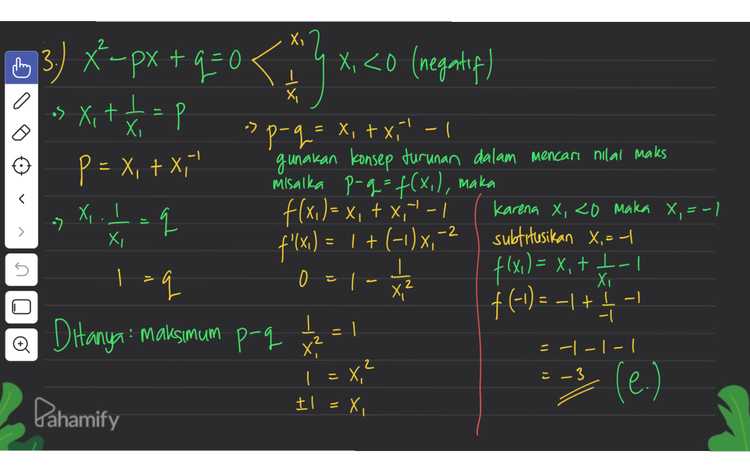 3.) x² - px + q = 0 < x₁ 1/x₁ } x₁ < 0 (negatif)
•> x₁ + 1/x₁ = p
p = x₁ + x₁⁻¹
•> x₁ . 1/x₁ = q
1 = q
Ditanya : maksimum p-q
•> p-q = x₁ + x₁⁻¹ - 1
gunakan konsep turunan dalam mencari nilai maks
misalka p-q = f(x₁), maka
f(x₁) = x₁ + x₁⁻¹ - 1
f'(x₁) = 1 + (-1) x₁⁻²
0 = 1 - 1/x₁²
1/x₁² = 1
1 = x₁²
±1 = x₁
karena x₁ < 0 maka x₁ = -1
subtitusikan x₁ = -1
f(x₁) = x₁ + 1/x₁ - 1
f(-1) = -1 + 1/-1 - 1
= -1 - 1 - 1
= -3 (e.)
Pahamify